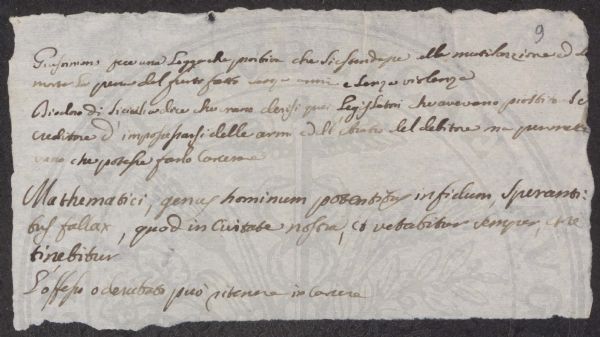 9
fece una Legge che proibiva che si estendesse alla mutilazione ed
morte la pena del furto fatto senza armi e senza violenza
Diodoro di Sicilia dice che erano derisi quei Legislatori che avevano proibito
creditore d'impossessarsi delle armi ed dell' aratro del debitore ma
vano che potesse farlo Carcerare
Mathematici, genus hominum potentibus infidum, Speranti:
bus fallax, quod in Civitate nostra, et vetabitur semper, et re
tinebitur
L'offeso o derubato può ritenere in Carcere